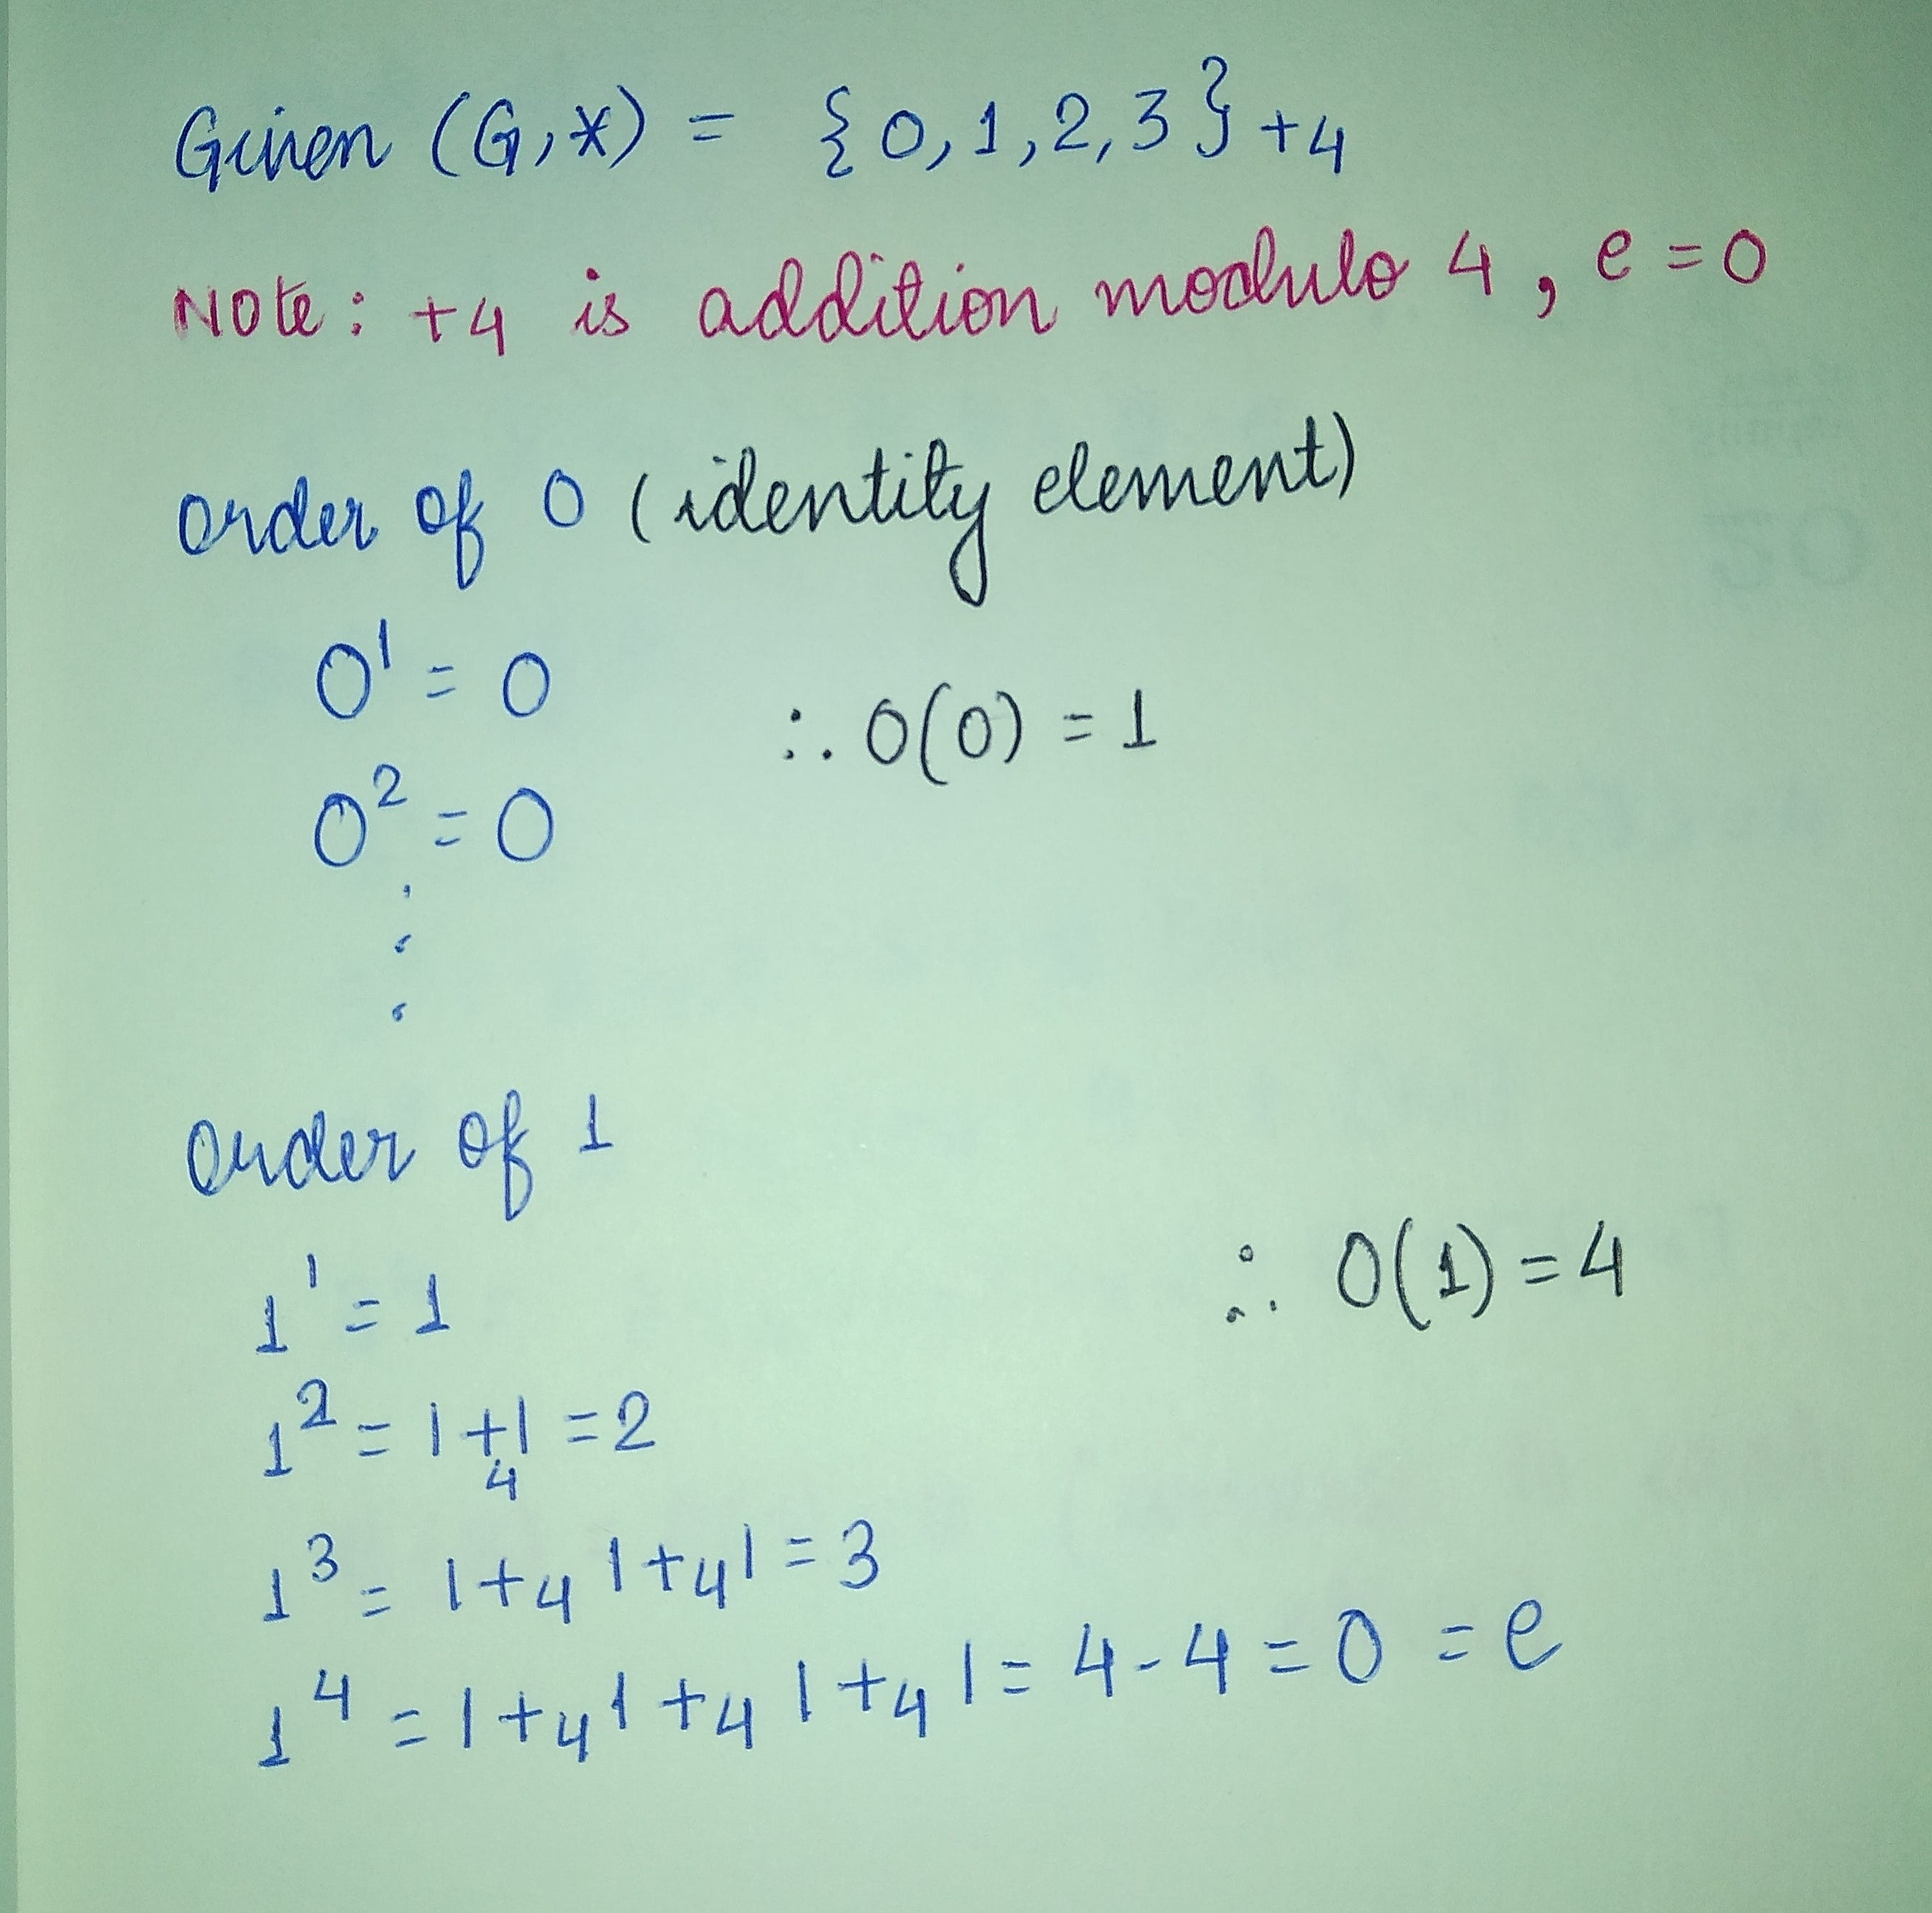 Given (G,*) = {0,1,2,3}+4
Note: +4 is addition modulo 4, e=0
order of 0 (identity element)
0¹ = 0
∴ O(0) = 1
0² = 0
.
.
.
Order of 1
1¹ = 1
∴ O(1) = 4
1² = 1 +₄ 1 = 2
1³ = 1 +₄ 1 +₄ 1 = 3
1⁴ = 1 +₄ 1 +₄ 1 +₄ 1 = 4-4 = 0 = e